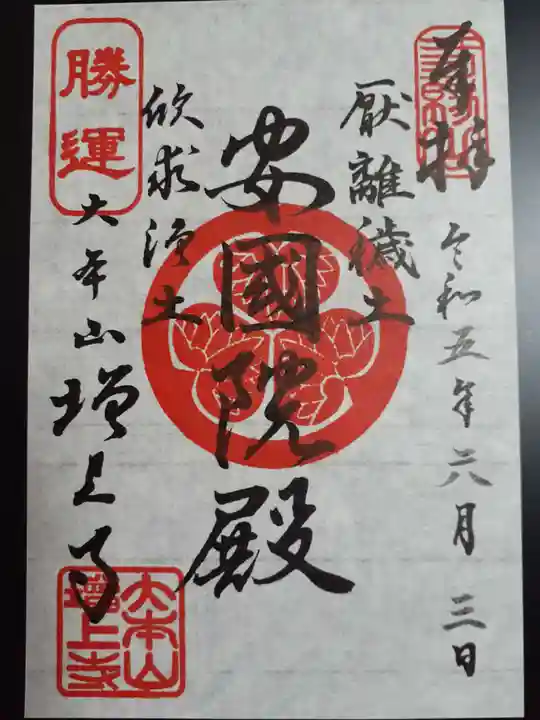 奉拝
令和五年六月三日
厭離穢土
安國院殿
欣求浄土
勝運
大本山増上寺
大本山
増上寺